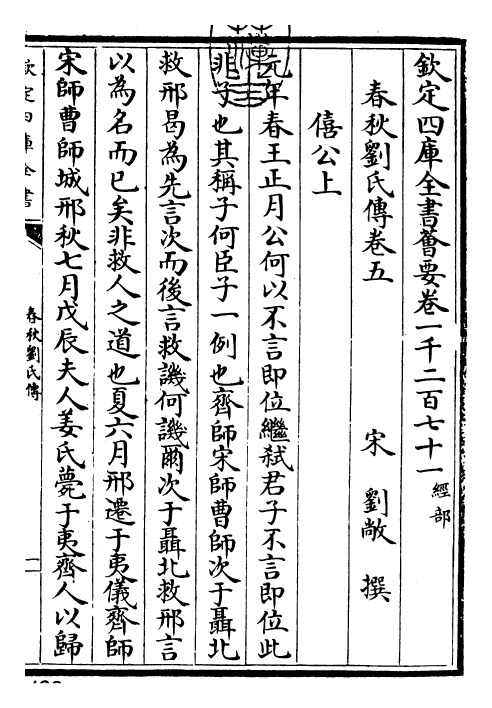 欽定四庫全書薈要卷一千二百七十一 經部
春秋劉氏傳卷五
宋 劉敞 撰
僖公上
元年春王正月公何以不言即位繼弑君子不言即位此
非子也其稱子何臣子一例也齊師宋師曹師次于聶北
救邢曷為先言次而後言救譏何譏爾次于聶北救邢言
以為名而已矣非救人之道也夏六月邢遷于夷儀齊師
宋師曹師城邢秋七月戊辰夫人姜氏薨于夷齊人以歸
欽定四庫全書
春秋劉氏傳
一